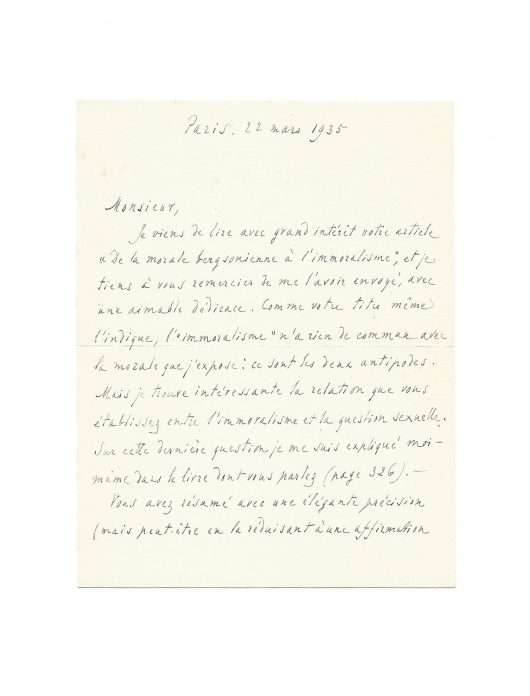 Paris. 22 mars 1935
Monsieur,
Je viens de lire avec grand intérêt votre article
« De la morale bergsonienne à l'immoralisme", et je
tiens à vous remercier de me l'avoir envoyé, avec
une aimable dédicace. Comme votre titre même
l'indique, l'"immoralisme" n'a rien de commun avec
la morale que j'expose : ce sont les deux antipodes.
Mais je trouve intéressante la relation que vous
établissez entre l'immoralisme et la question sexuelle.
Sur cette dernière question je me suis expliqué moi-
même dans le livre dont vous parlez (page 326). —
Vous avez résumé avec une élégante précision
(mais peut-être en la réduisant à une affirmation